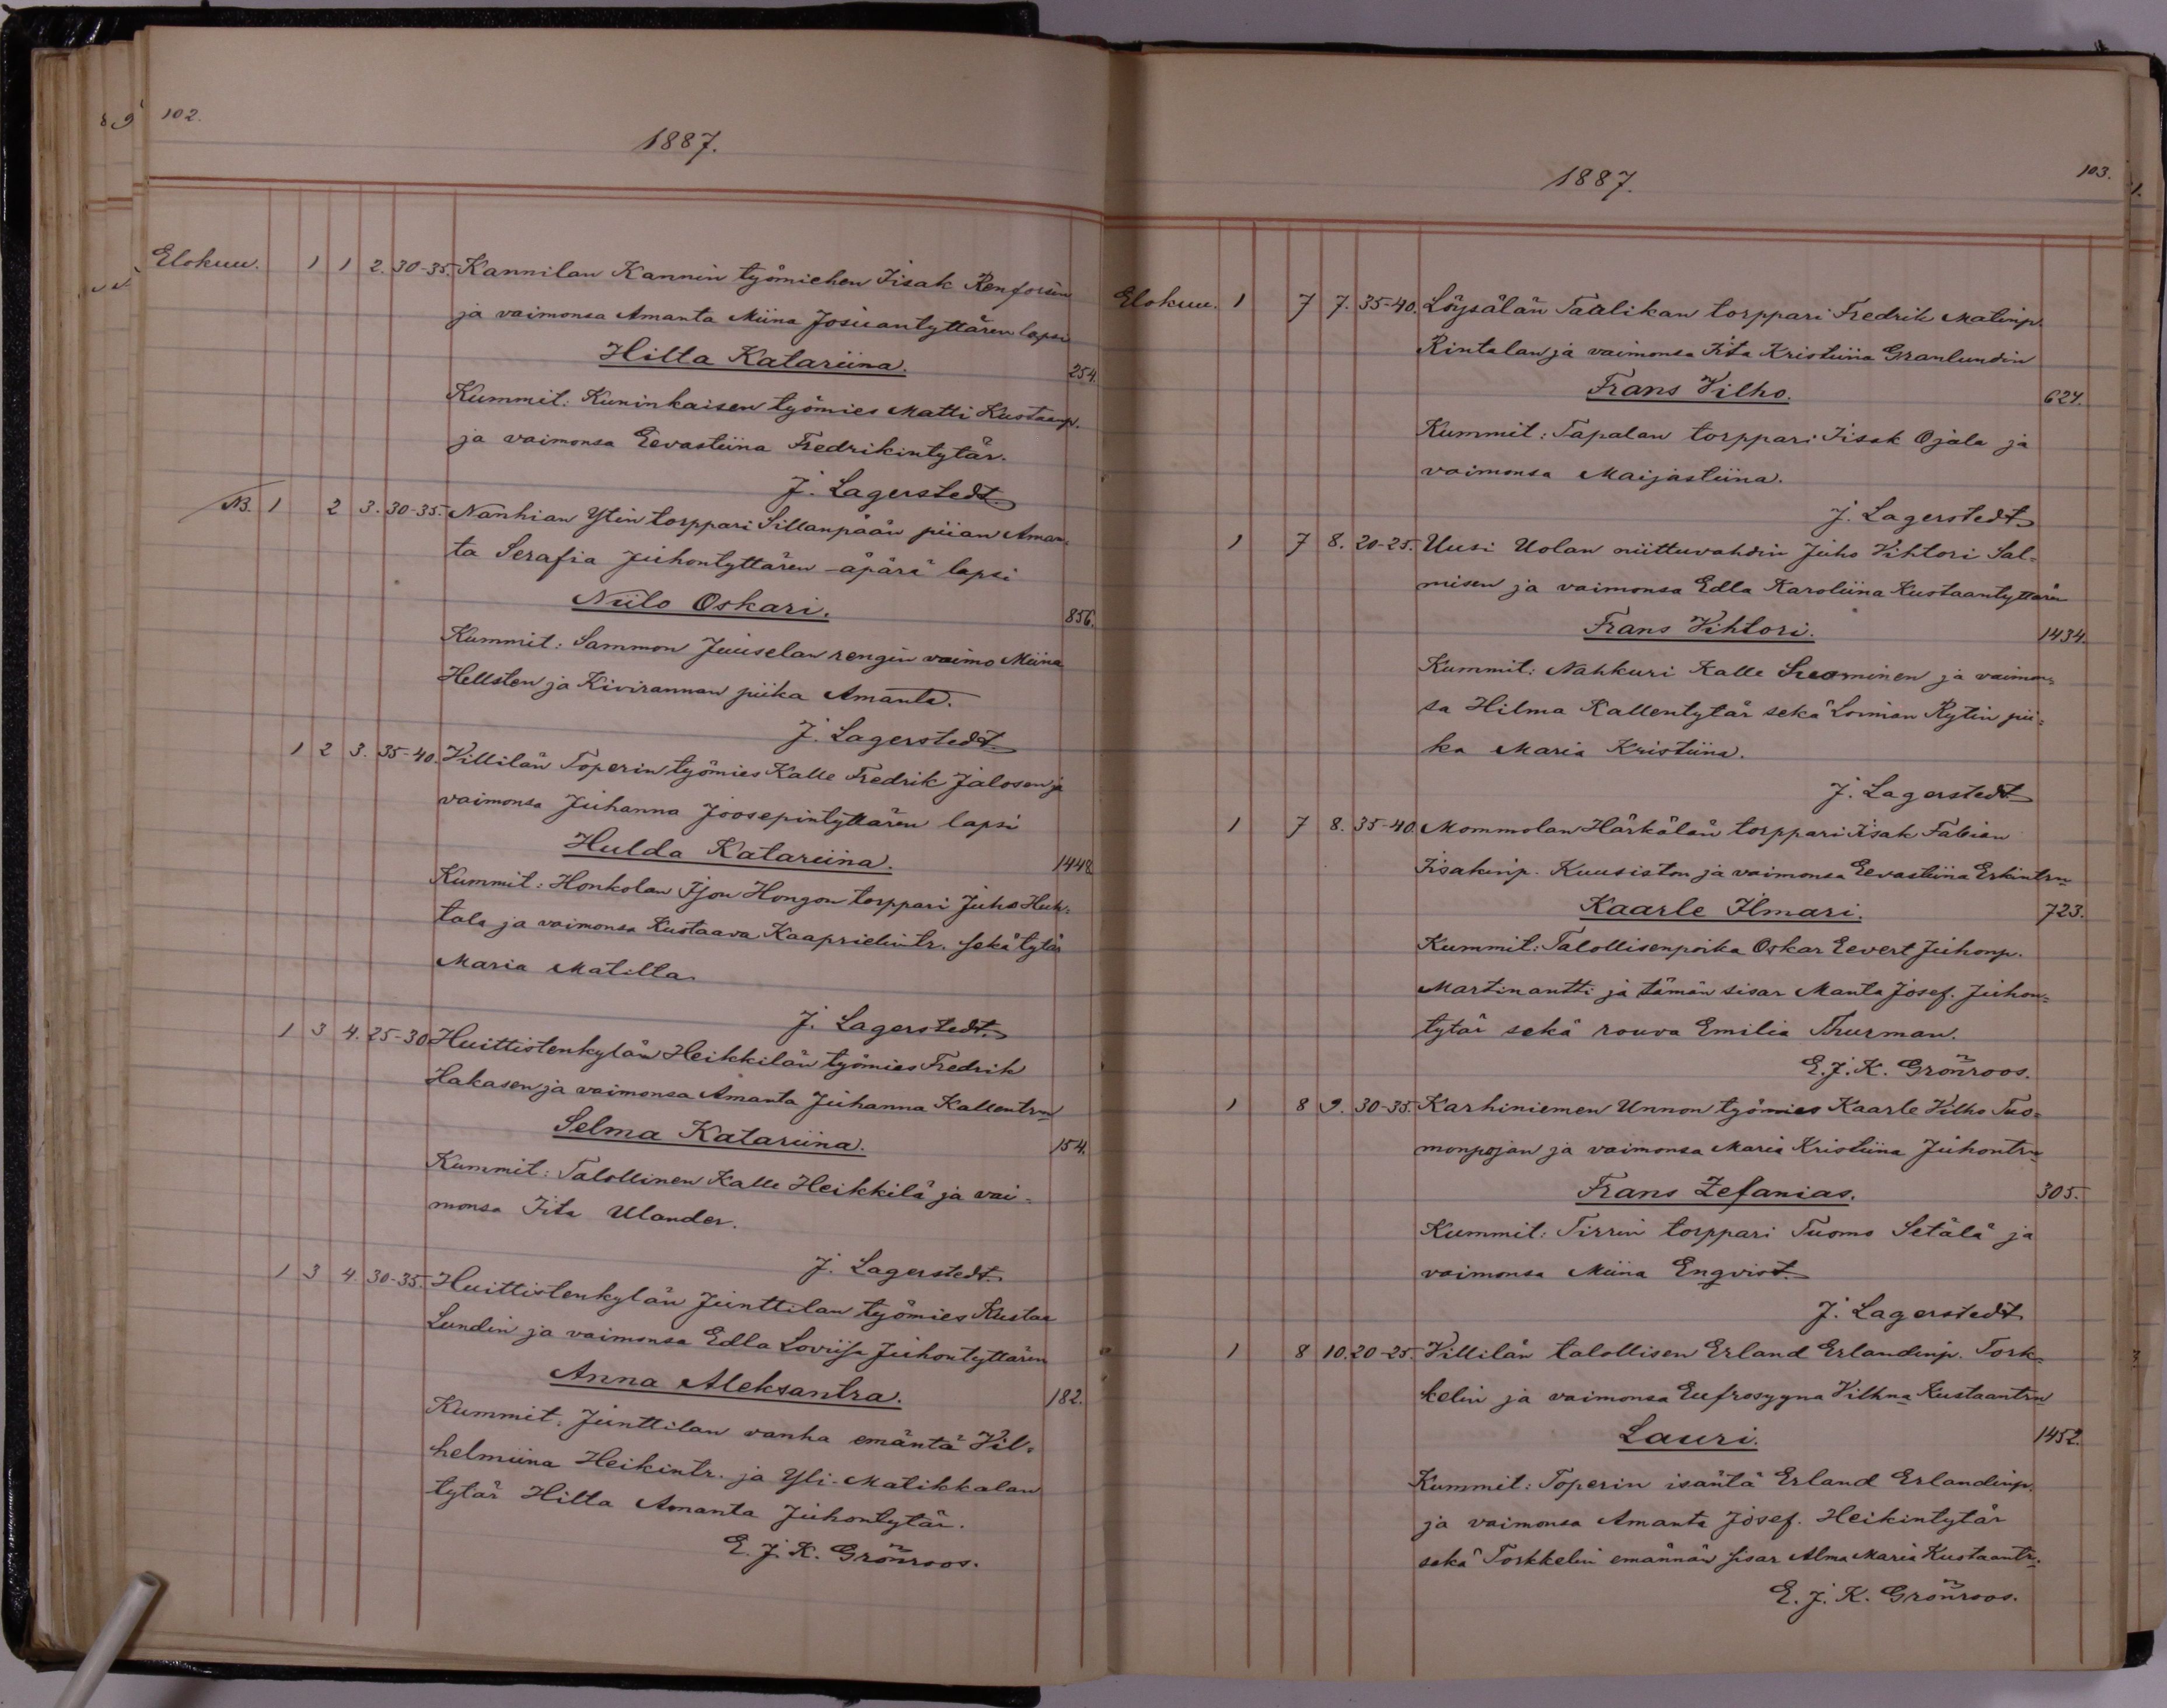 102.
1887.
Elokuu. 1 1 2. 30-35. Kannilan Kannin työmiehen Iisak Renforsin
ja vaimonsa Amanta Miina Josuantyttären lapsi
Hilta Katariina. 254.
Kummit: Kuninkaisen työmies Matti Kustaanp.
ja vaimonsa Eevastiina Fredrikintytär.
J. Lagerstedt
NB. 1 2 3. 30-35. Nanhian Ytin torppari Sillanpään piian Aman-
ta Serafia Juhontyttären äpärä lapsi
Niilo Oskari. 856.
Kummit: Sammon Juuselan rengin vaimo Miina
Hellsten ja Kivirannan piika Amanta.
J. Lagerstedt
1 2 3. 35-40. Villilän Toperin työmies Kalle Fredrik Jalosen ja
vaimonsa Juhanna Joosepintyttären lapsi
Hulda Katariina. 1448.
Kummit: Honkolan Ijon Hongon torppari Juho Huh-
tala ja vaimonsa Kustaava Kaaprielintr. sekä tytär
Maria Matilta.
J. Lagerstedt
1 3 4. 25-30 Huittistenkylän Heikkilän työmies Fredrik
Hakasen ja vaimonsa Amanta Juhanna Kallentrn
Selma Katariina. 154.
Kummit: Talollinen Kalle Heikkilä ja vai-
monsa Iita Ulander.
J. Lagerstedt
1 3 4. 30-35. Huittistenkylän Junttilan työmies Kustaa
Lundin ja vaimonsa Edla Loviisa Juhontyttären
Anna Aleksantra. 182.
Kummit: Junttilan vanha emäntä Vil-
helmiina Heikintr. ja Yli-Matikkalan
tytär Hilta Amanta Juhontytär.
E. J. K. Grönroos.
103.
1887.
Elokuu. 1 7 7. 35-40. Löysälän Taalikan torppari Fredrik Matinp.
Rintalan ja vaimonsa Iita Kristiina Granlundin
Frans Vilho. 624.
Kummit: Tapalan torppari Iisak Ojala ja
vaimonsa Maijastiina.
J. Lagerstedt
1 7 8. 20-25. Uusi Uolan niittuvahdin Juho Vihtori Sal-
misen ja vaimonsa Edla Karoliina Kustaantyttären
Frans Vihtori. 1434.
Kummit: Nahkuri Kalle Suominen ja vaimon-
sa Hilma Kallentytär sekä Loiman Rytin pii-
ka Maria Kristiina.
J. Lagerstedt
1 7 8. 35-40. Mommolan Härkälän torppari Iisak Fabian
Iisakinp. Kuusiston ja vaimonsa Eevastiina Erkintrn
Kaarle Ilmari. 723.
Kummit: Talollisenpoika Oskar Eevert Juhonp.
Martinantti ja tämän sisar Manta Josef. Juhon-
tytär sekä rouva Emilia Thurman.
E. J. K. Grönroos.
1 8 9. 30-35. Karhiniemen Unnon työmies Kaarle Vilho Tuo-
monpojan ja vaimonsa Maria Kristiina Juhontrn
Frans Zefanias. 305.
Kummit: Tirrin torppari Tuomo Setälä ja
vaimonsa Miina Engvist.
J. Lagerstedt
1 8 10. 20-25. Villilän talollisen Erland Erlandinp. Tork-
kelin ja vaimonsa Eufrosyyna Vilhna Kustaantrn
Lauri. 1452.
Kummit: Toperin isäntä Erland Erlandinp.
ja vaimonsa Amanta Josef. Heikintytär
sekä Torkkelin emännän sisar Alma Maria Kustaantr.
E. J. K. Grönroos.